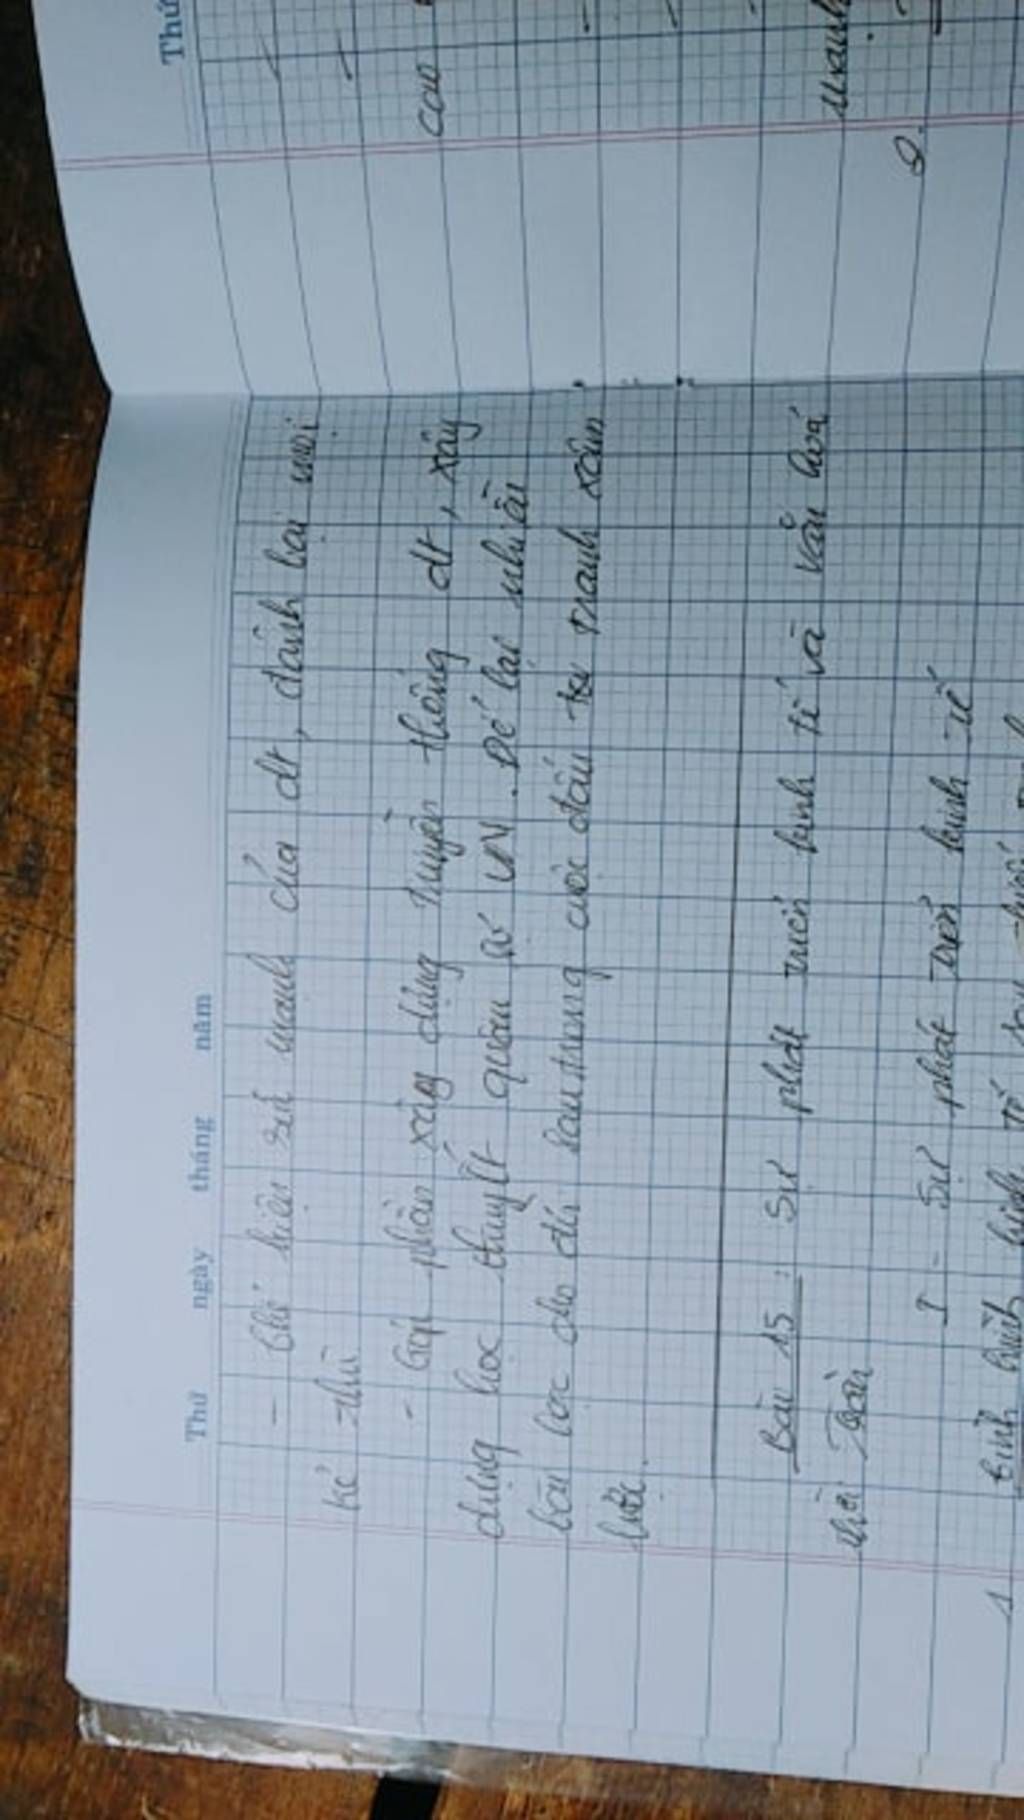 Thứ ngày tháng năm
- Thể hiện sức mạnh của dt, đánh bại mọi
kẻ thù
- Góp phần xây dựng truyền thống dt, xây
dựng học thuyết quân sự VN. Để lại nhiều
bài học cho đời sau trong cuộc đấu tranh xâm
lược.
Bài 15: Sự phát triển kinh tế và văn hoá
thời Trần
I - Sự phát triển kinh tế
1 tình hình kinh tế sau
Thứ
cao
mạnh
2.